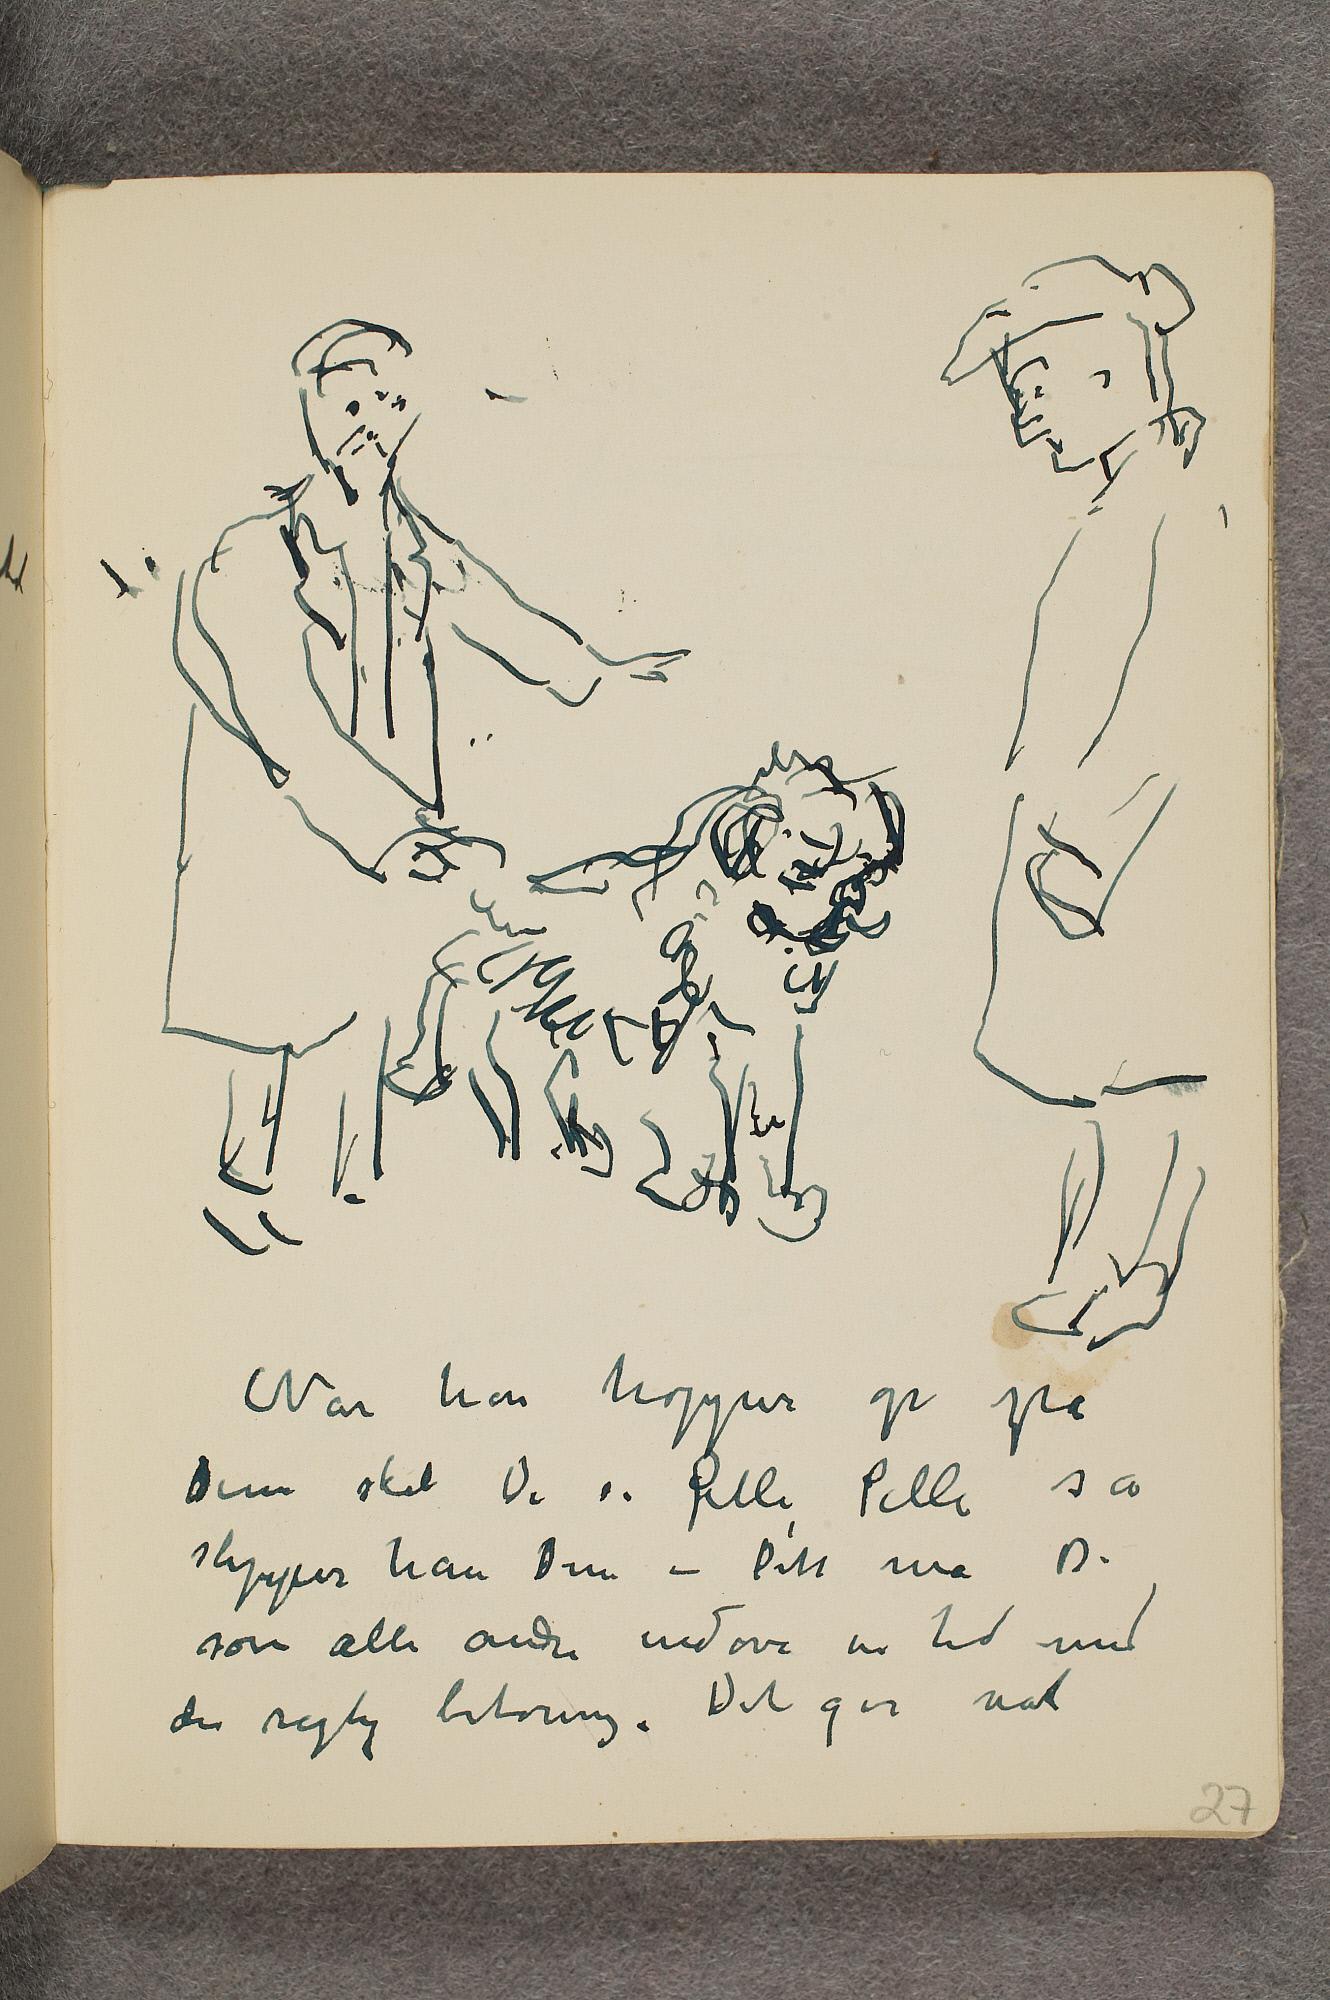 Når han hopper op på
Dem skal De si Pelle, Pelle så
slipper han Dem – Dette må De
som alle andre indøve en tid med
den rigtig betoning. Det gør nok
27